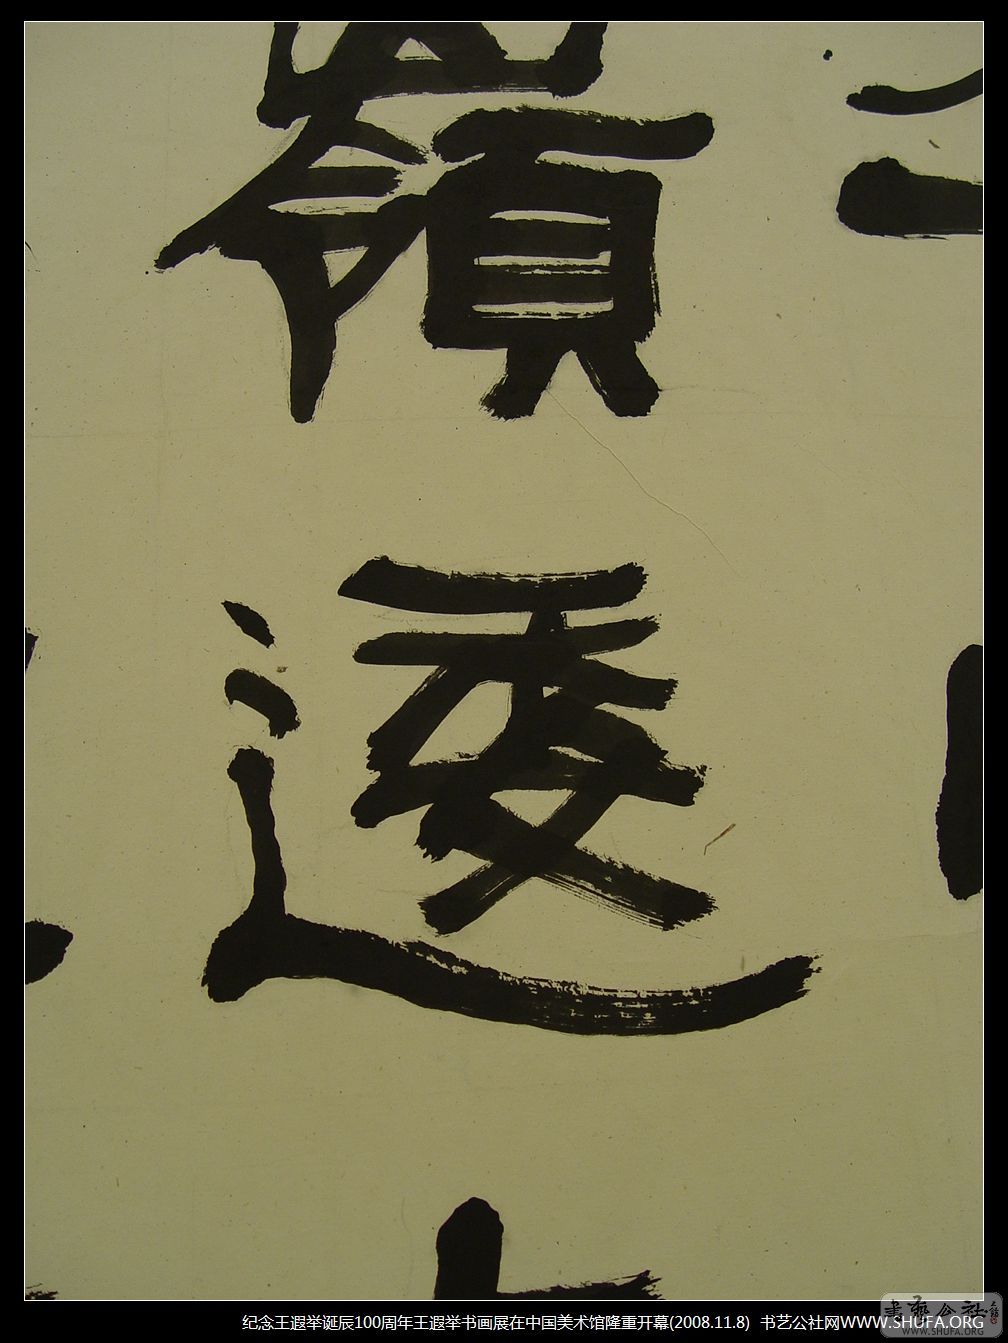 嶺
逶
纪念王遐举诞辰100周年王遐举书画展在中国美术馆隆重开幕(2008.11.8) 书艺公社网WWW.SHUFA.ORG
書藝公社
WWW.SHUFA.ORG